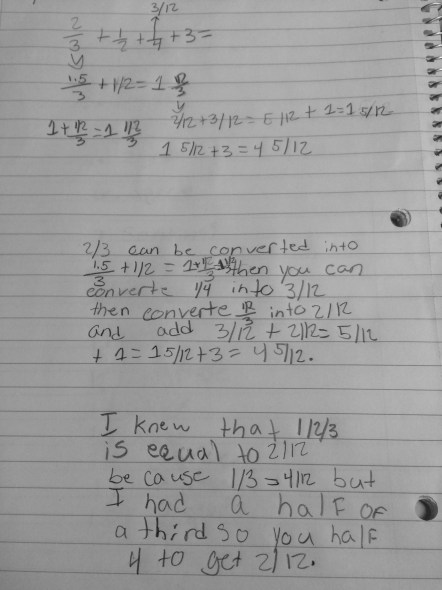 3/12
2/3 + 1/2 + 1/4 + 3 =
1.5/3 + 1/2 = 1 1/2/3
2/12 + 3/12 = 5/12 + 1 = 1 5/12
1 + 1/2/3 = 1 1/2/3
1 5/12 + 3 = 4 5/12
2/3 can be converted into
1.5/3 + 1/2 = then you can
converte 1/4 into 3/12
then converte 1/2/3 into 2/12
and add 3/12 + 2/12 = 5/12
+ 1 = 1 5/12 + 3 = 4 5/12.
I knew that 1/2/3
is equal to 2/12
because 1/3 = 4/12 but
I had a half of
a third so you half
4 to get 2/12.